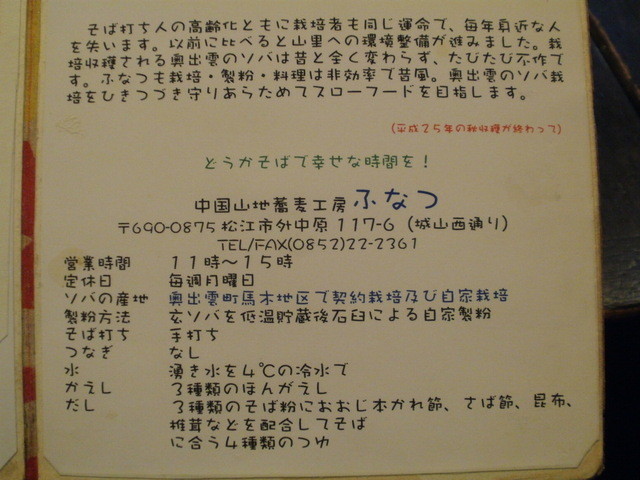 そば打ち人の高齢化ともに栽培者も同じ運命で、毎年身近な人
を失います。以前に比べると山里への環境整備が進みました。栽
培収穫される奥出雲のソバは昔と全く変わらず、たびたび不作で
す。ふなつも栽培・製粉・料理は非効率で昔風。奥出雲のソバ栽
培をひきつづき守りあらためてスローフードを目指します。
(平成25年の秋収穫が終わって)
どうかそばで幸せな時間を！
中国山地蕎麦工房 ふなつ
〒690-0875 松江市外中原 117-6 (城山西通り)
TEL/FAX(0852)22-2361
営業時間 11時～15時
定休日 毎週月曜日
ソバの産地 奥出雲町馬木地区で契約栽培及び自家栽培
製粉方法 玄ソバを低温貯蔵後石臼による自家製粉
そば打ち 手打ち
つなぎ なし
水 湧き水を4℃の冷水で
かえし 3種類のほんがえし
だし 3種類のそば粉におおじ本かれ節、さば節、昆布、
椎茸などを配合してそば
に合う4種類のつゆ